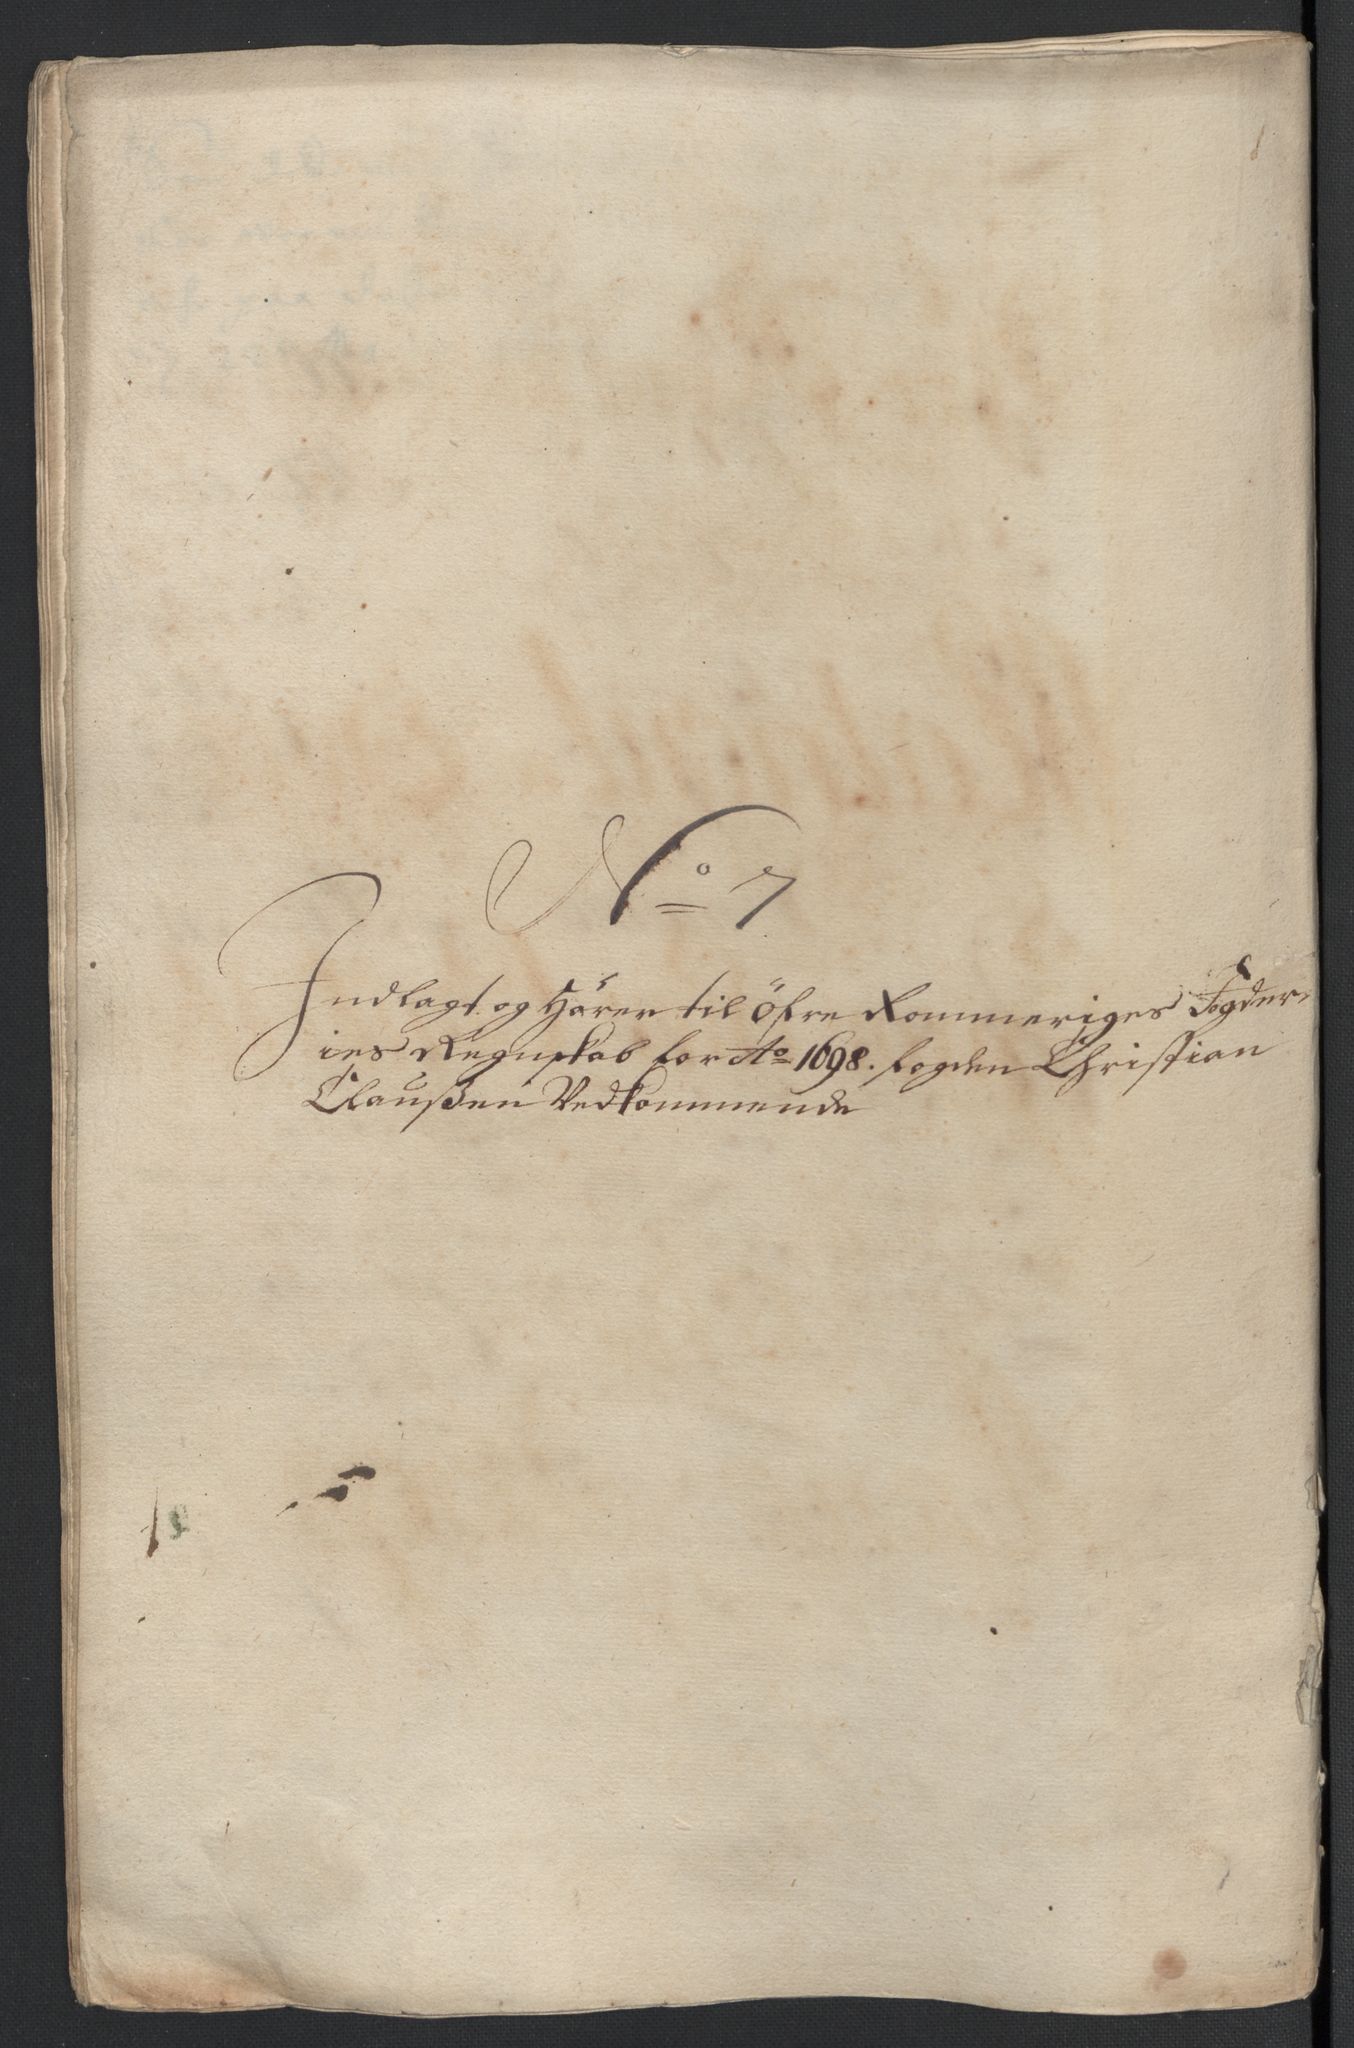 No 7
Indlagt og Hörer til Öfre Rommeriges Fogder
ies Regnskab for Ao 1698. fogden Christian
Claußen Vedkommende